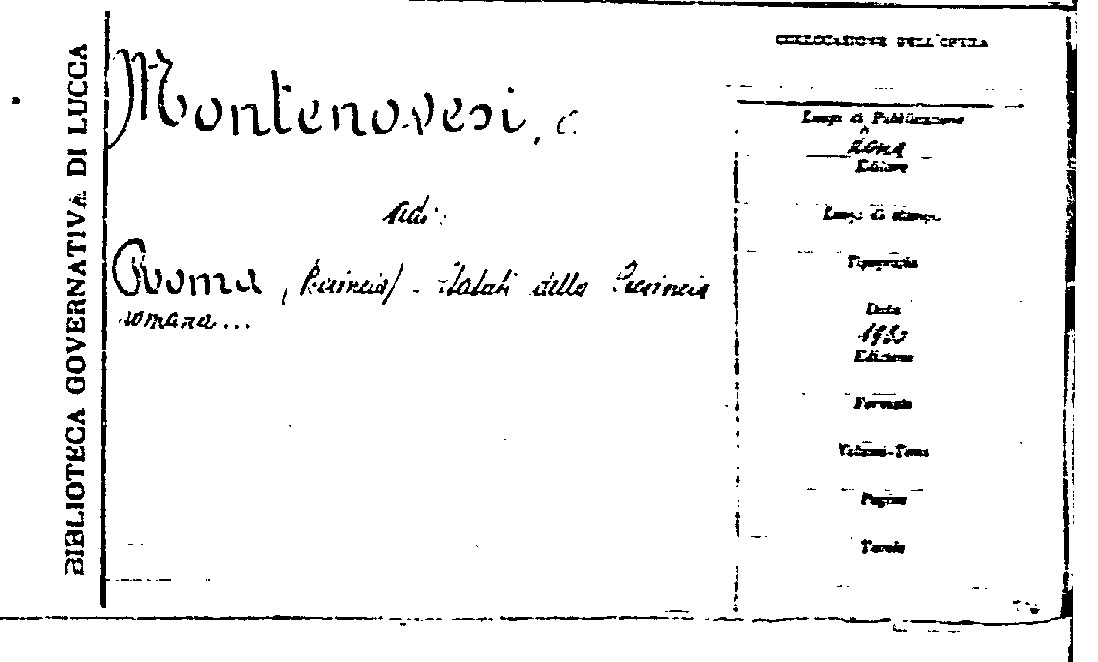 BIBLIOTECA GOVERNATIVA DI LUCCA
Montenovesi, C.
Roma (Provincia) - Statuti della Provincia
romana...
COLLOCAZIONE DELL'OPERA
Luogo di Pubblicazione
Roma
Editore
Luogo di stampa
Tipografia
Data
1930
Edizione
Formato
Volumi-Tomi
Pagine
Tavole